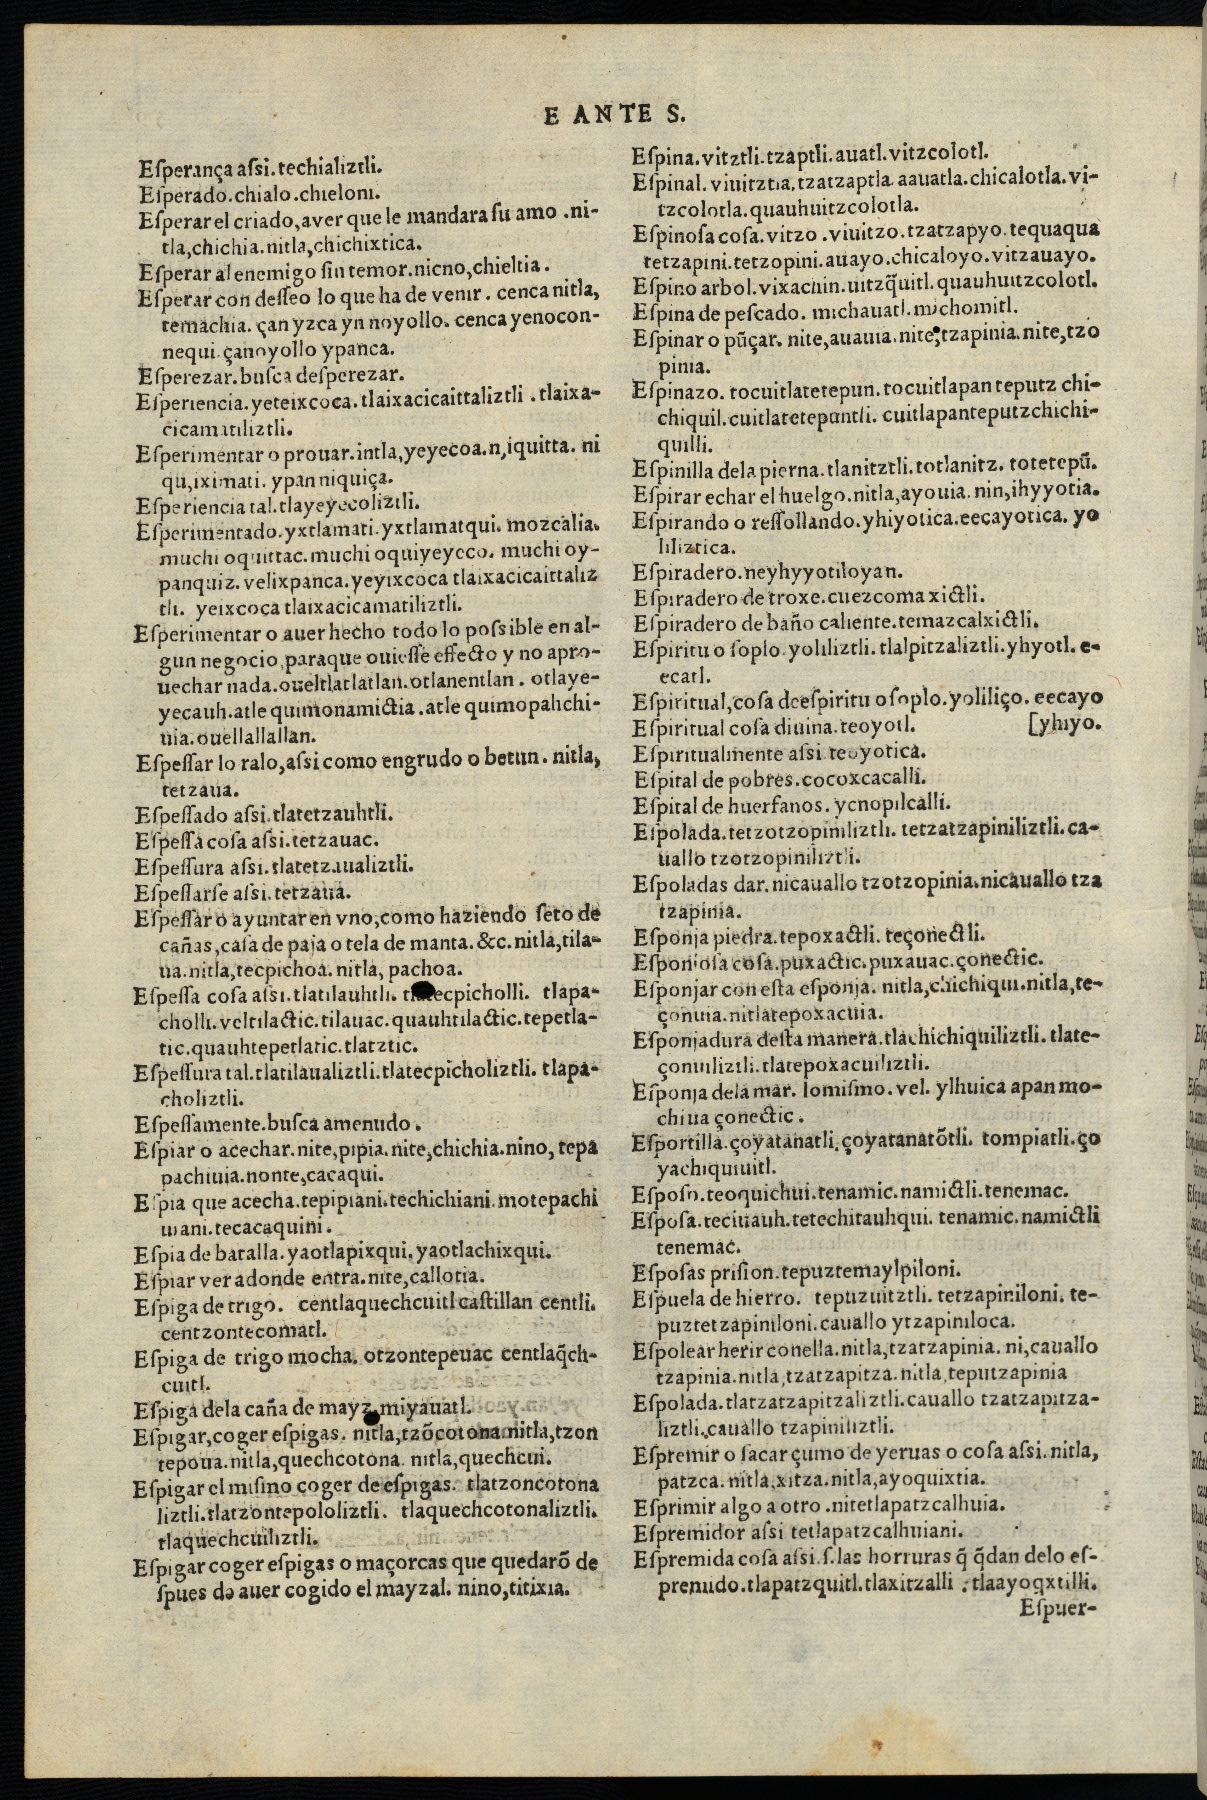 E ANTE S.
Eſperança aſsi. techializtli.
Eſperado. chialo. chieloni.
Eſperar el criado, a ver que le mandara ſu amo. ni-
tla, chichia. nitla, chichixtica.
Eſperar al enemigo ſin temor. nicno, chieltia.
Eſperar con deſſeo lo que ha de venir. cenca nitla,
temachia. çan yzca yn noyollo. cenca yenocon-
nequi. çanoyollo ypanca.
Eſperezar. buſca deſperezar.
Eſperiencia. yeteixcoca. tlaixacicaittaliztli. tlaixa-
cicamatiliztli.
Eſperimentar o prouar. intla, yeyecoa. n, iquitta. ni
qu, iximati. ypan niquiça.
Eſperiencia tal. tlayeyecoliztli.
Eſperimentado. yxtlamati. yxtlamatqui. mozcalia.
muchi oquittac. muchi oquiyeyeco. muchi oy-
panquiz. velixpanca. yeyixcoca tlaixacicaittaliz
tli. yeixcoca tlaixacicamatiliztli.
Eſperimentar o auer hecho todo lo poſsible en al-
gun negocio, paraque ouieſſe effecto y no apro-
uechar nada. oueltlatlatlan. otlanentlan. otlaye-
yecauh. atle quimonamictia. atle quimopahchi-
uia. ouellallallan.
Eſpeſſar lo ralo, aſsi como engrudo o betun. nitla,
tetzaua.
Eſpeſſado aſsi. tlatetzauhtli.
Eſpeſſa coſa aſsi. tetzauac.
Eſpeſſura aſsi. tlatetzaualiztli.
Eſpeſſarſe aſsi. tetzaua.
Eſpeſſar o ayuntar en vno, como haziendo ſeto de
cañas, caſa de paja o tela de manta. &c. nitla, tila-
ua. nitla, tecpichoa. nitla, pachoa.
Eſpeſſa coſa aſsi. tlatilauhtli. tlatecpicholli. tlapa-
cholli. veltilactic. tilauac. quauhtilactic. tepetla-
tic. quauhtepetlatic. tlatztic.
Eſpeſſura tal. tlatilaualiztli. tlatecpicholiztli. tlapa-
choliztli.
Eſpeſſamente. buſca amenudo.
Eſpiar o acechar. nite, pipia. nite, chichia. nino, tepa
pachiuia. nonte, cacaqui.
Eſpia que acecha. tepipiani. techichiani. motepachi
uiani. tecacaquini.
Eſpia de batalla. yaotlapixqui. yaotlachixqui.
Eſpiar ver adonde entra. nite, callotia.
Eſpiga de trigo. centlaquechcuitl caſtillan centli.
centzontecomatl.
Eſpiga de trigo mocha. otzontepeuac centlaq̃ch-
cuitl.
Eſpiga dela caña de mayz. miyauatl.
Eſpigar, coger eſpigas. nitla, tzõcotona. nitla, tzon
tepoua. nitla, quechcotona. nitla, quechcui.
Eſpigar el miſmo coger de eſpigas. tlatzoncotona
liztli. tlatzontepololiztli. tlaquechcotonaliztli.
tlaquechcuiliztli.
Eſpigar coger eſpigas o maçorcas que quedarõ de
ſpues de auer cogido el mayzal. nino, titixia.
Eſpina. vitztli. tzaptli. auatl. vitzcolotl.
Eſpinal. viuitztla. tzatzaptla. aauatla. chicalotla. vi-
tzcolotla. quauhuitzcolotla.
Eſpinoſa coſa. vitzo. viuitzo. tzatzapyo. tequaqua
tetzapini. tetzopini. auayo. chicaloyo. vitzauayo.
Eſpino arbol. vixachin. uitzq̃uitl. quauhuitzcolotl.
Eſpina de peſcado. michauatl. michomitl.
Eſpinar o pũçar. nite, auauia. nite, tzapinia. nite, tzo
pinia.
Eſpinazo. tocuitlatetepun. tocuitlapan teputz chi-
chiquil. cuitlatetepuntli. cuitlapanteputzchichi-
quilli.
Eſpinilla dela pierna. tlanitztli. totlanitz. totetepũ.
Eſpirar echar el huelgo. nitla, ayouia. nin, ihyyotia.
Eſpirando o reſſollando. yhiyotica. eecayotica. yo
liliztica.
Eſpiradero. neyhyyotiloyan.
Eſpiradero de troxe. cuezcomaxictli.
Eſpiradero de baño caliente. temazcalxictli.
Eſpiritu o ſoplo. yoliliztli. tlalpitzaliztli. yhyotl. e-
ecatl.
Eſpiritual, coſa de eſpiritu o ſoplo. yoliliço. eecayo
Eſpiritual coſa diuina. teoyotl. [yhiyo.
Eſpiritualmente aſsi. teoyotica.
Eſpital de pobres. cocoxcacalli.
Eſpital de huerfanos. ycnopilcalli.
Eſpolada. tetzotzopiniliztli. tetzatzapiniliztli. ca-
uallo tzotzopiniliztli.
Eſpoladas dar. nicauallo tzotzopinia. nicauallo tza
tzapinia.
Eſponja piedra. tepoxactli. teçonectli.
Eſponjoſa coſa. puxactic. puxauac. çonectic.
Eſponjar con eſta eſponja. nitla, chichiqui. nitla, te-
çonuia. nitlatepoxacuia.
Eſponjadura deſta manera. tlachichiquiliztli. tlate-
çonuiliztli. tlatepoxacuiliztli.
Eſponja dela mar. lo miſmo. vel. ylhuica apan mo-
chiua çonectic.
Eſportilla. çoyatanatli. çoyatanatõtli. tompiatli. ço
yachiquiuitl.
Eſpoſo. teoquichui. tenamic. namictli. tenemac.
Eſpoſa. teciuauh. tetechitauhqui. tenamic. namictli
tenemac.
Eſpoſas priſion. tepuztemaylpiloni.
Eſpuela de hierro. tepuzuitztli. tetzapiniloni. te-
puztetzapiniloni. cauallo ytzapiniloca.
Eſpolear herir con ella. nitla, tzatzapinia. ni, cauallo
tzapinia. nitla, tzatzapitza. nitla, teputzapinia
Eſpolada. tlatzatzapitzaliztli. cauallo tzatzapitza-
liztli. cauallo tzapiniliztli.
Eſpremir o ſacar çumo de yeruas o coſa aſsi. nitla,
patzca. nitla, xitza. nitla, ayoquixtia.
Eſprimir algo a otro. nitetlapatzcalhuia.
Eſpremidor aſsi tetlapatzcalhuiani.
Eſpremida coſa aſsi. ſ. las horruras q̃ q̃dan delo eſ-
premido. tlapatzquitl. tlaxitzalli. tlaayoqxtilli.
Eſpuer-